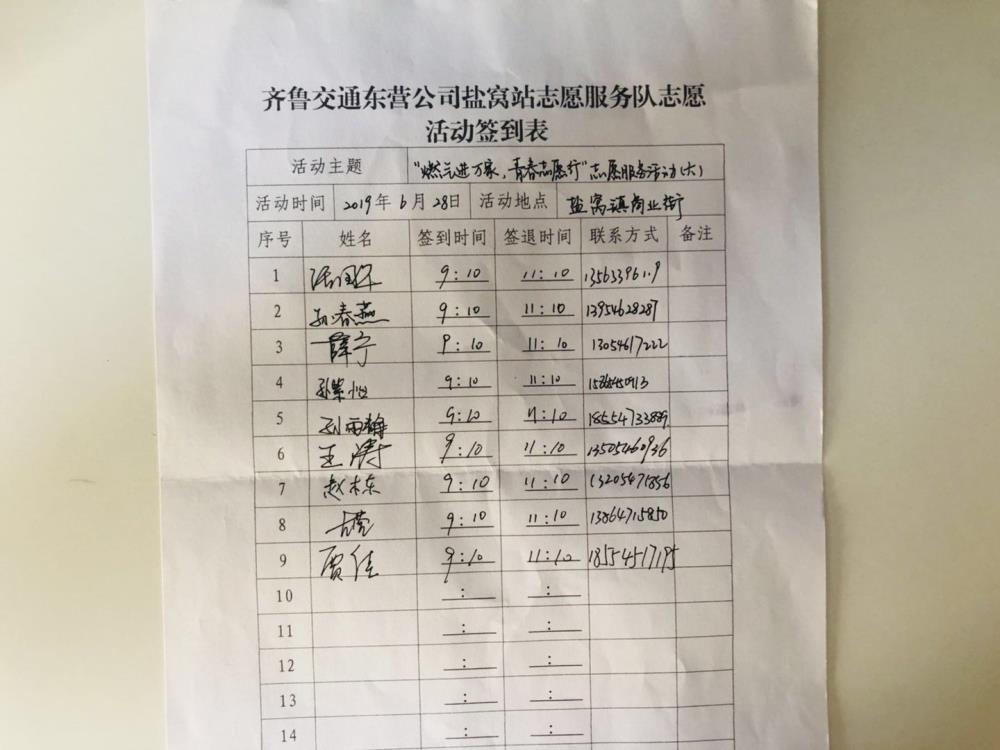 齐鲁交通东营公司盐窝站志愿服务队志愿
活动签到表
活动主题 "燃气进万家，青春志愿行"志愿服务活动(六)
活动时间 2019年6月28日 活动地点 盐窝镇商业街
序号 姓名 签到时间 签退时间 联系方式 备注
1 9:10 11:10
2 孙春燕 9:10 11:10 13954628287
3 薛宁 9:10 11:10 13054617222
4 9:10 11:10
5 孙雨静 9:10 11:10 18554733889
6 王涛 9:10 11:10 13505460936
7 赵栋 9:10 11:10 13205471856
8 9:10 11:10 13864715850
9 贾佳 9:10 11:10 18554517195
10 :  :
11 :  :
12 :  :
13 :  :
14 :  :